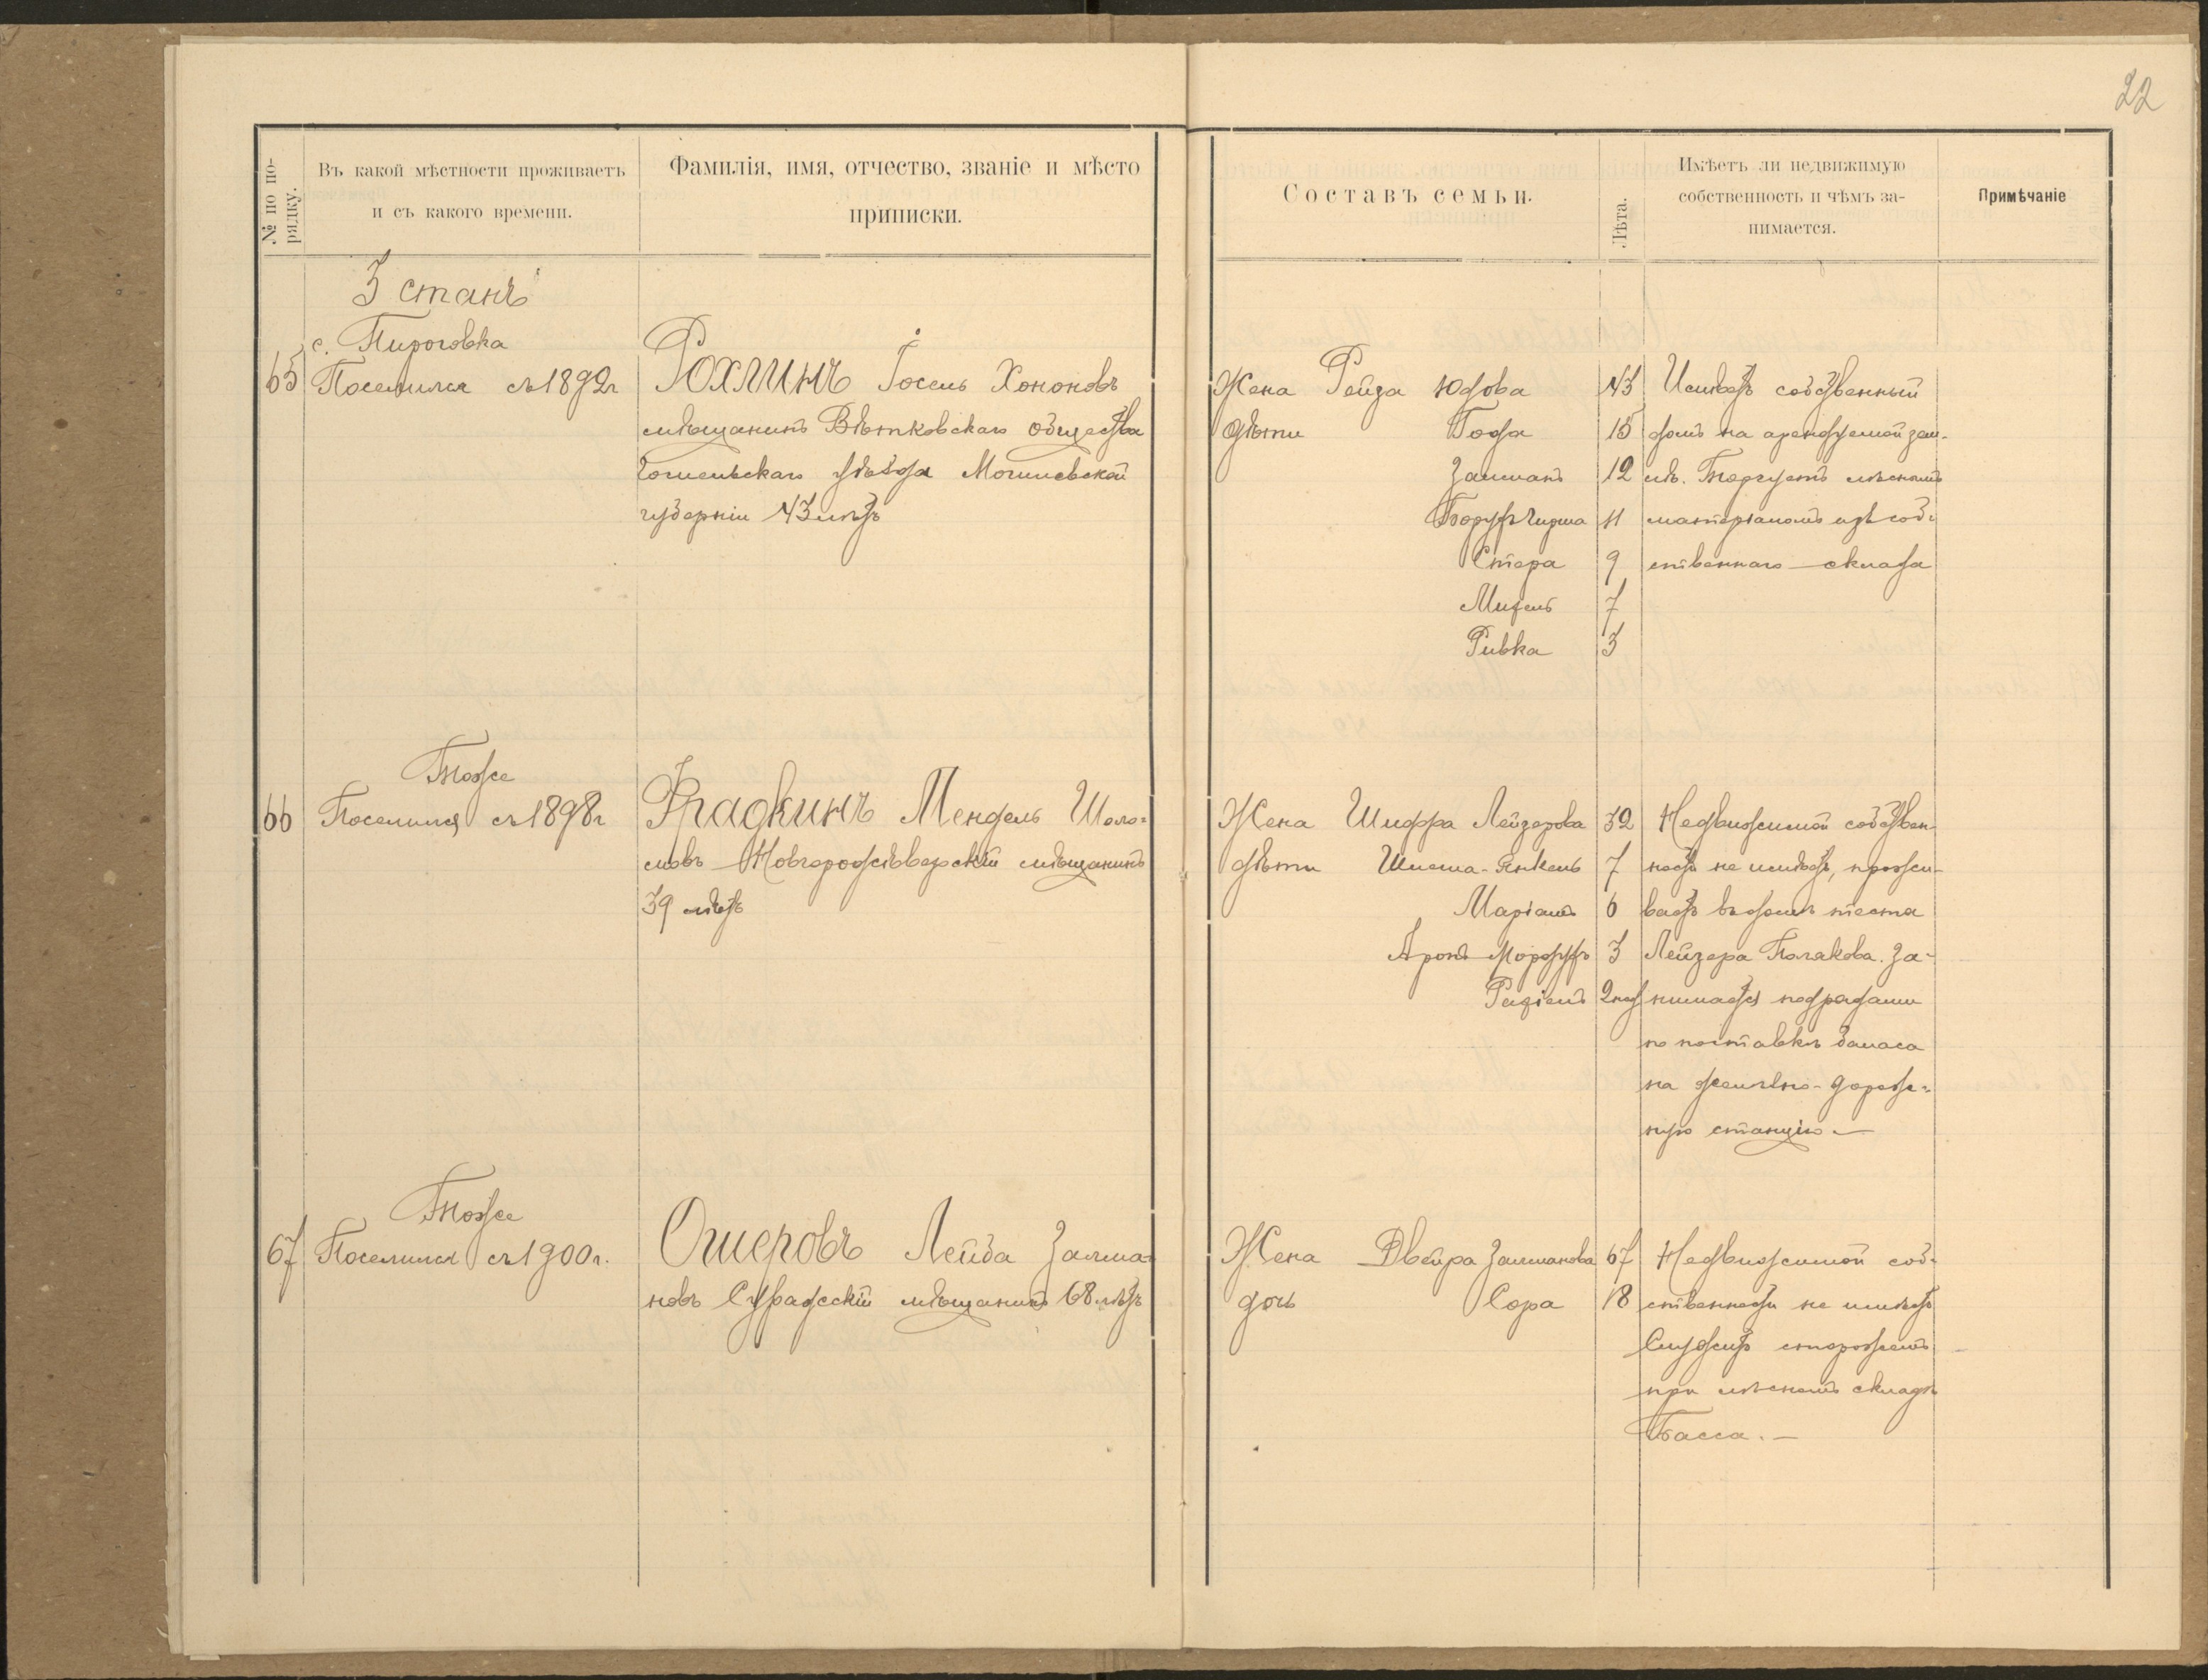 22
№ по по-
рядку.
Въ какой мѣстности проживаетъ
и съ какого времени.
Фамилія, имя, отчество, званіе и мѣсто
приписки.
Составъ семьи.
Лѣта.
Имѣетъ ли недвижимую
собственность и чѣмъ за-
нимается.
Примѣчаніе
3 станъ
с. Пироговка
65 Поселился съ 1892 г
Рохлинъ Іосель Хононовъ
мѣщанинъ Вѣтковскаго общества
Гомельскаго уѣзда Могилевской
губерніи 43 лѣтъ
Жена Рейза Юдова 43
дѣти Года 15
Залманъ 12
Борухъ Гирша 11
Стера 9
Михель 7
Ривка 3
Имѣетъ собственный
домъ на арендуемой зем-
лѣ. Торгуетъ лѣснымъ
матеріаломъ изъ соб-
ственнаго склада
Тоже
66 Поселился съ 1898 г
Фрадкинъ Мендель Шоло-
мовъ Новгородсѣверскій мѣщанинъ
39 лѣтъ
Жена Шифра Лейзерова 32
дѣти Шлема-Янкель 7
Маріамъ 6
Аронъ Мордухъ 3
2 нед
Недвижимой собствен
ности не имѣетъ, прожи-
ваетъ въ домѣ тестя
Лейзера Полякова. За-
нимается подрядами
по поставкѣ баласа
на желѣзно-дорож-
ную станцію.—
Тоже
67 Поселился съ 1900 г.
Ошеровъ Лейба Залма-
новъ Суражскій мѣщанинъ 68 лѣтъ
Жена Двейра Залманова 67
дочь Сора 18
Недвижимой соб-
ственности не имѣетъ
Служитъ сторожемъ
при лѣсномъ складѣ
Басса.—